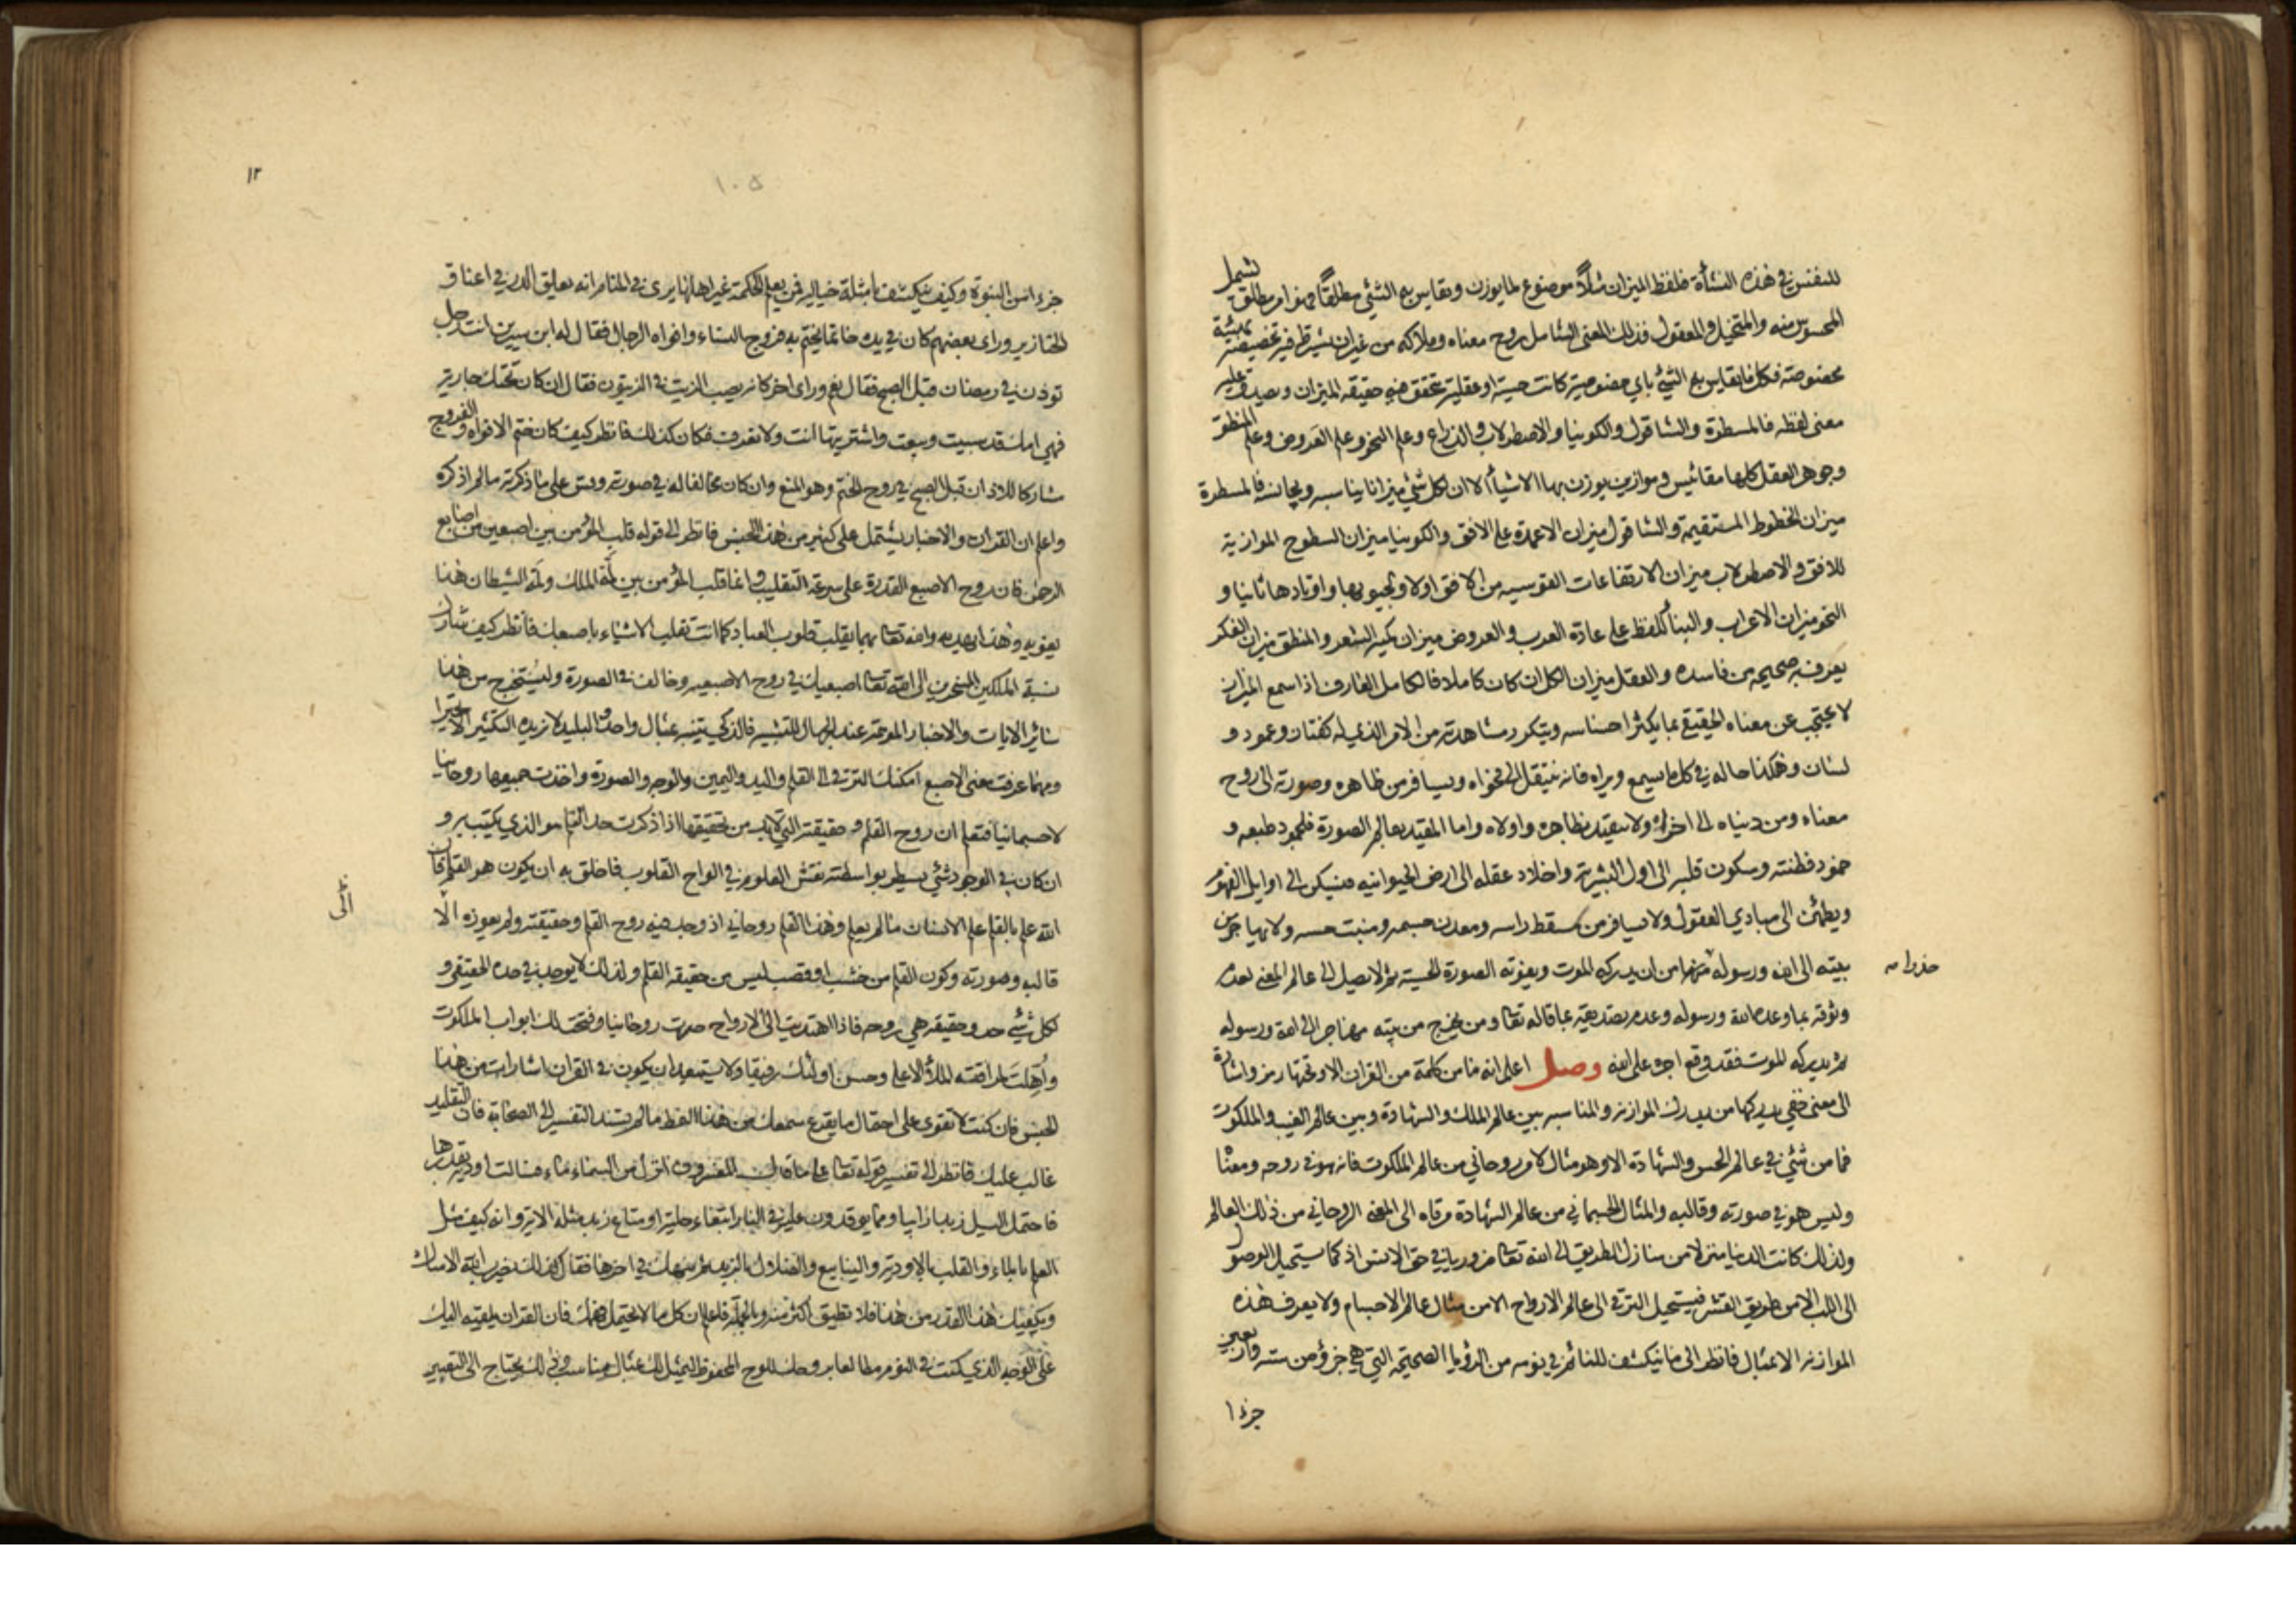 للنفس في هذه النشأة فلفظ الميزان مثلاً موضوع لما يوزن ويقاس به الشئ مطلقاً فهو امر مطلق يشمل
المحسوس منه والمتخيل والمعقول فذلك المعنى الشامل روح معناه وملاكه من غير ان يشترط فيه تخصيصه بهيئة
مخصوصة فكل ما يقاس به الشئ باي خصوصية كانت حسية او عقلية تحقق فيه حقيقة الميزان ويصدق عليه
معنى لفظه فالمسطرة والشاقول والكونيا والاصطرلاب والذراع وعلم النحو وعلم العروض وعلم المنطق
وجوهر العقل كلها مقائيس وموازين يوزن بها الاشياء الا ان لكل شئ ميزانا يناسبه ويجانسه فالمسطرة
ميزان الخطوط المستقيمة والشاقول ميزان الاعمدة على الافق والكونيا ميزان السطوح الموازية
للافق والاصطرلاب ميزان الارتفاعات القوسيه من الافق اولا وجيوبها واوتادها ثانيا و
النحو ميزان الاعراب والبناء للفظ على عادة العرب والعروض ميزان كمية الشعر والمنطق ميزان الفكر
يعرف به صحيحه من فاسده والعقل ميزان الكل ان كان كاملا فالكامل العارف اذا سمع الميزان
لا يحتجب عن معناه الحقيقي بما يكثر احساسه ويتكرر مشاهدته من الامر الذي له كفتان وعمود و
لسان وهكذا حاله في كل ما يسمع ويراه فانه ينتقل الى فحواه ويسافر من ظاهره وصورته الى روح
معناه ومن دنياه الى اخراه ولا يتقيد بظاهره واولاه واما المقيد بعالم الصورة فلجمود طبعه و
خمود فطنته وسكون قلبه الى اول البشرية واخلاد عقله الى ارض الحيوانيه فيسكن الى اوايل الفهوم
ويطمئن الى مبادي العقول ولا يسافر من مسقط راسه ومعدن جسمه ومنبت حسه ولا يهاجر من
بيته الى الله ورسوله من ان يدركه الموت ويفوته الصورة الحسية ثم لا يصل الى عالم المعنى لعدم
حذرا مه
وثوقه بما وعده الله ورسوله وعدم تصديقه بما قاله تعا ومن يخرج من بيته مهاجرا الى الله ورسوله
ثم يدركه الموت فقد وقع اجره على الله وصل اعلم انه ما من كلمة من القران الا وتحتها رمز واشارة
الى معنى خفي يدركها من يدرك الموازنه والمناسبه بين عالم الملك والشهادة وبين عالم الغيب والملكوت
فما من شئ في عالم الحس والشهادة الا وهو مثال لامر روحاني من عالم الملكوت فانه هو في روحه ومعناه
وليس هو في صورته وقالبه والمثال الجسماني من عالم الشهادة مرقاه الى المعنى الروحاني من ذلك العالم
ولذلك كانت الدنيا منزلا من منازل الطريق الى الله تعا ضروريا في حق الانس اذ كما يستحيل الوصول
الى اللب الا من طريق القشر فيستحيل الترقي الى عالم الارواح الا من مثال عالم الاجسام ولا يعرف هذه
الموازنه الا بمثال فانظر الى ما ينكشف للنائم في نومه من الرؤيا الصحيحة التي هي جزؤ من ستة واربعين
جزءا
١٢
١٠٥
جزءا من النبوة وكيف ينكشف بامثلة خياليه فمن يعلم الحكمة غير اهلها يرى في المنام انه يعلق الدر في اعناق
الخنازير وراى بعضهم كان في يده خاتما يختم به فروج النساء وافواه الرجال فقال له ابن سيرين انت رجل
توذن في رمضان قبل الصبح فقال نعم وراى اخر كانه يصب الزيت في الزيتون فقال ان كان تحتك جارية
فهي امك قد سبيت وبيعت واشتريتها انت ولا تعرف فكان كذلك فانظر كيف كان ختم الافواه والفروج
مشاركا للاذان قبل الصبح في روح الختم وهو المنع وان كان مخالفا له في صورته وقس على ما ذكرته ما لم اذكره
واعلم ان القران والاخبار يشتمل على كثير من هذا الجنس فانظر الى قوله قلب المؤمن بين اصبعين من اصابع
الرحمن فان روح الاصبع القدرة على سرعة التقليب وانما قلب المؤمن بين لمة الملك ولمة الشيطان هذا
يغويه وهذا يهديه والله تعا بهما يقلب قلوب العباد كما انت تقلب الاشياء باصبعك فانظر كيف شارك
نسبة الملكين المسخرين الى الله تعا اصبعيك في روح الاصبعيه وخالف في الصورة وليستخرج من هذا
سائر الايات والاخبار الموهمة عند الجهال للتشبيه فالذكي يتنبه بمثال واحد والبليد لا يزيده التكثير الا تحيرا
ومهما عرفت معنى الاصبع امكنك الترقي الى القلم واليد واليمين والوجه والصورة واخذت جميعها روحانيا
لا جسمانيا فتعلم ان روح القلم وحقيقته التي لا بد من تحقيقها اذا ذكرت حد القلم هو الذي يكتب به و
ان كان في الوجود شئ يسطر بواسطته نقش العلوم في الواح القلوب فاخلق به ان يكون هو القلم فان
الله علم بالقلم علم الانسان ما لم يعلم وهذا القلم روحاني اذ وجد فيه روح القلم وحقيقته ولم يعوزه الا
قالبه وصورته وكون القلم من خشب او قصب ليس من حقيقة القلم ولذلك لا يوجد في حده الحقيقي و
لكل شئ حد وحقيقه هي روحه فاذا اهتديت الى الارواح صرت روحانيا وفتحت لك ابواب الملكوت
واهلت لمرافقة الملأ الاعلى وحسن اولئك رفيقا ولا يستبعد ان يكون في القران اشارات من هذا
الجنس فان كنت لا تقوى على احتمال ما يقرع سمعك من هذا النمط ما لم تسند التفسير الى الصحابة فان التقليد
غالب عليك فانظر الى تفسير قوله تعا على ما قاله المفسرون انزل من السماء ماء فسالت اودية بقدرها
فاحتمل السيل زبدا رابيا ومما يوقدون عليه في النار ابتغاء حلية او متاع زبد مثله الاية وانه كيف مثل
العلم بالماء والقلب بالاودية والينابيع والضلال بالزبد ثم ينبهك في اخرها فقال كذلك يضرب الله الامثال
ويكفيك هذا القدر من هذا فلا تطيق اكثر منه وبالجملة فاعلم ان كل ما لا يحتمله فهمك فان القران يلقيه اليك
على الوجه الذي كنت في النوم مطالعا بروحك للوح المحفوظ ليمثل لك بمثال مناسب وذلك يحتاج الى التعبير